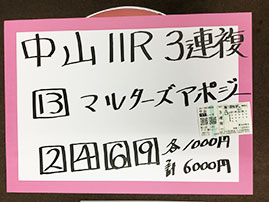 中山11R 3連複
13 マルターズアポジー
2 4 6 9 各1000円
計6000円